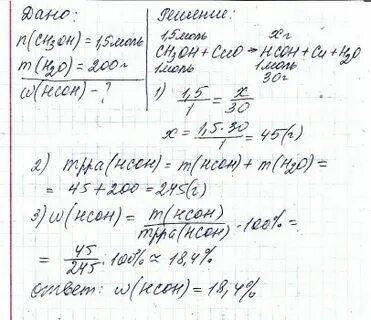 Дано:
n(CH₃OH) = 1,5моль
m(H₂O) = 200г
w(HCOH) - ?
Решение:
1,5моль xг
CH₃OH + CuO → HCOH + Cu + H₂O
1моль 1моль
30г
1) 1,5/1 = x/30
x = 1,5·30/1 = 45(г)
2) mрра(HCOH) = m(HCOH) + m(H₂O) =
= 45 + 200 = 245(г)
3) w(HCOH) = m(HCOH)/mрра(HCOH) · 100% =
= 45/245 · 100% ≈ 18,4%
ответ: w(HCOH) = 18,4%